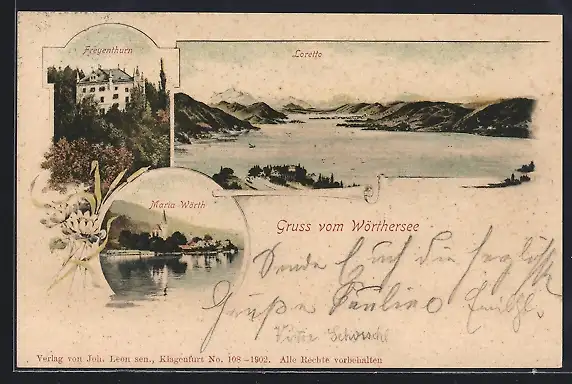 Freyenthurn
Loretto
Maria Wörth
Gruss vom Wörthersee
Sende Euch die
Grüße Pauline
Verlag von Joh. Leon sen., Klagenfurt No. 108 – 1902. Alle Rechte vorbehalten